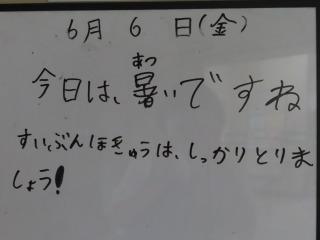 6月 6 日(金)
あつ
今日は、暑いですね
すいぶんほきゅうは、しっかりとりま
しょう!